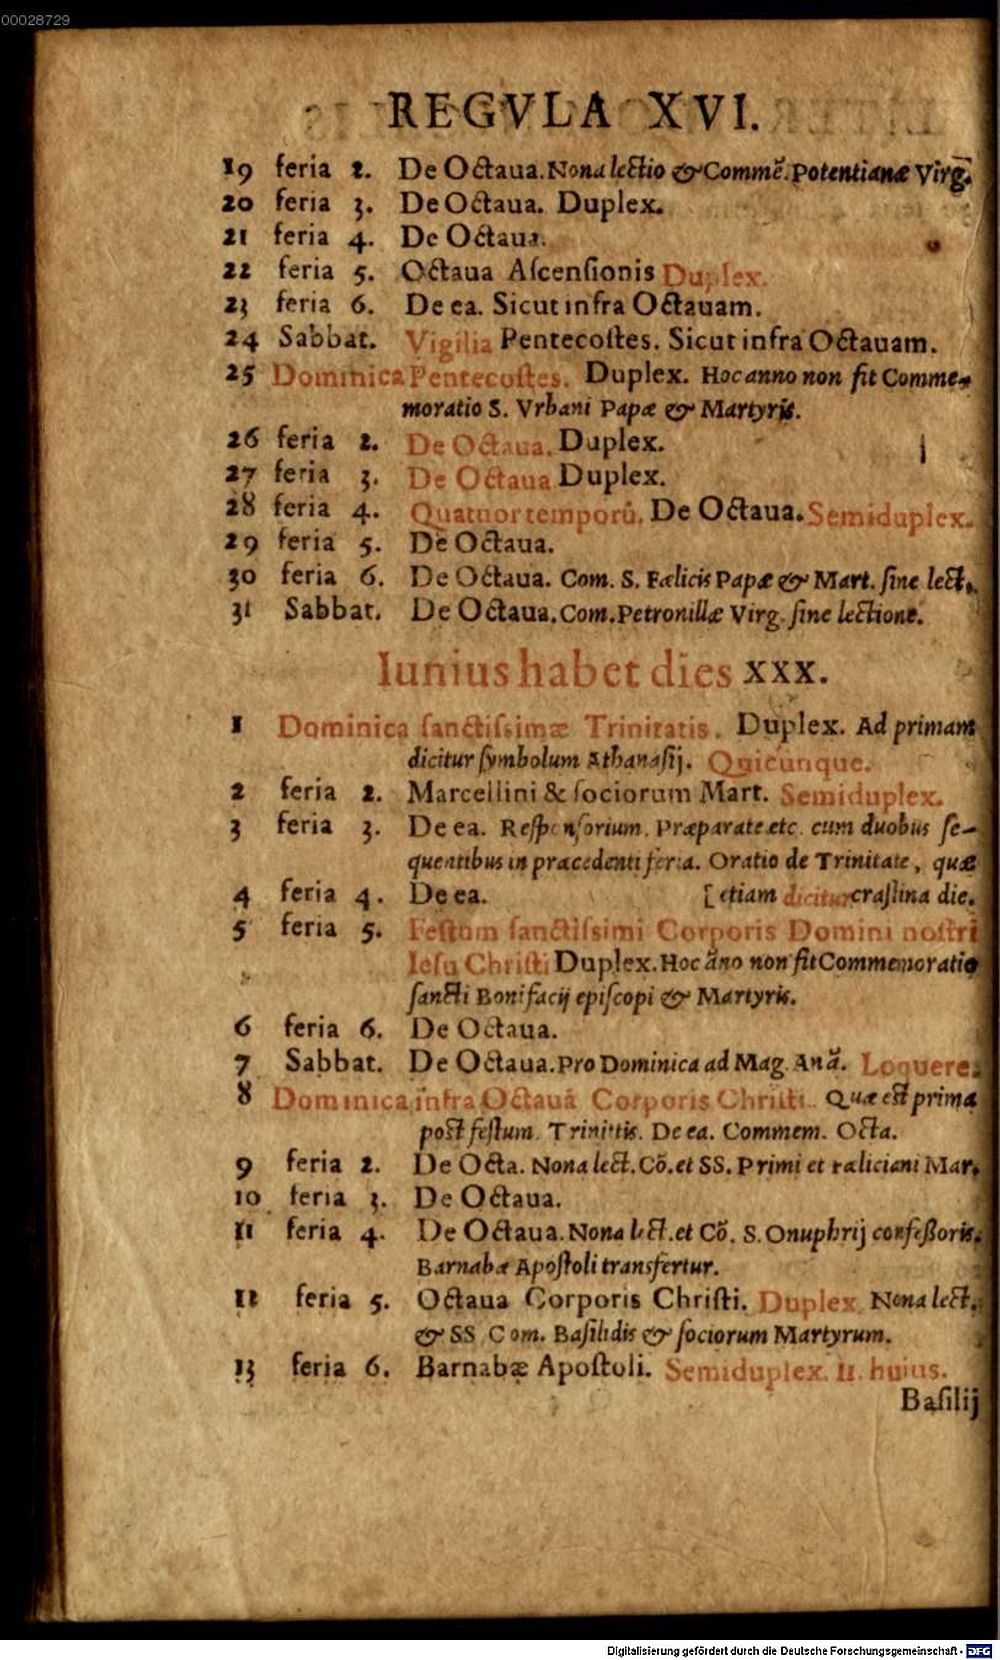 00028729
REGVLA XVI.
19 feria 2. De Octaua. Nona lectio & Commē. Potentianæ Virg.
20 feria 3. De Octaua. Duplex.
21 feria 4. De Octaua.
22 feria 5. Octaua Aſcenſionis Duplex.
23 feria 6. De ea. Sicut infra Octauam.
24 Sabbat. Vigilia Pentecoſtes. Sicut infra Octauam.
25 Dominica Pentecoſtes. Duplex. Hoc anno non fit Comme-
moratio S. Vrbani Papæ & Martyris.
26 feria 2. De Octaua. Duplex.
27 feria 3. De Octaua Duplex.
28 feria 4. Quatuor temporū. De Octaua. Semiduplex.
29 feria 5. De Octaua.
30 feria 6. De Octaua. Com. S. Fælicis Papæ & Mart. ſine lect.
31 Sabbat. De Octaua. Com. Petronillæ Virg. ſine lectione.
Iunius habet dies XXX.
1 Dominica ſanctiſsimæ Trinitatis. Duplex. Ad primam
dicitur ſymbolum Athanaſij. Quicunque.
2 feria 2. Marcellini & ſociorum Mart. Semiduplex.
3 feria 3. De ea. Reſponſorium. Præparate etc. cum duobus ſe-
quentibus in præcedenti feria. Oratio de Trinitate, quæ
4 feria 4. De ea. [etiam dicitur craſtina die.
5 feria 5. Feſtum ſanctiſsimi Corporis Domini noſtri
Ieſu Chriſti Duplex. Hoc āno non fit Commemoratio
ſancti Bonifacij epiſcopi & Martyris.
6 feria 6. De Octaua.
7 Sabbat. De Octaua. Pro Dominica ad Mag. Anā. Loquere.
8 Dominica infra Octauā Corporis Chriſti. Quæ eſt prima
poſt feſtum Trinitis. De ea. Commem. Octa.
9 feria 2. De Octa. Nona lect. Cō. et SS. Primi et Fæliciani Mar.
10 feria 3. De Octaua.
11 feria 4. De Octaua. Nona lect. et Cō. S. Onuphrij confeſſoris.
Barnabæ Apoſtoli transfertur.
12 feria 5. Octaua Corporis Chriſti. Duplex. Nona lect.
& SS Com. Baſilidis & ſociorum Martyrum.
13 feria 6. Barnabæ Apoſtoli. Semiduplex. 11. huius.
Baſilij
Digitalisierung gefördert durch die Deutsche Forschungsgemeinschaft - DFG